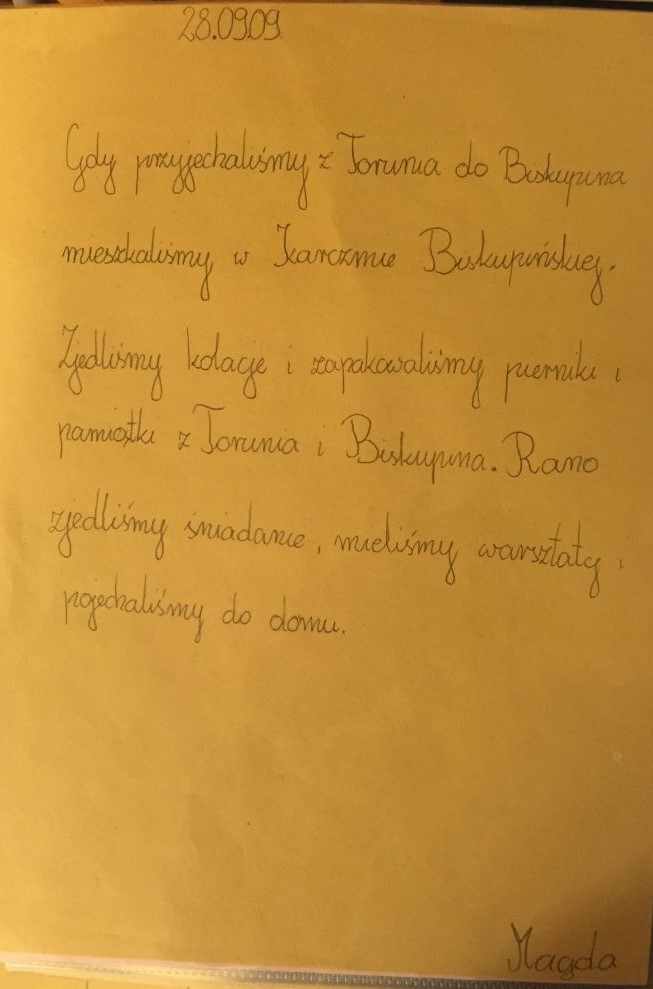 28.09.09
Gdy przyjechaliśmy z Torunia do Biskupina
mieszkaliśmy w Karczmie Biskupińskiej.
Zjedliśmy kolacje i zapakowaliśmy pierniki i
pamiątki z Torunia i Biskupina. Rano
zjedliśmy śniadanie, mieliśmy warsztaty i
pojechaliśmy do domu.
Magda